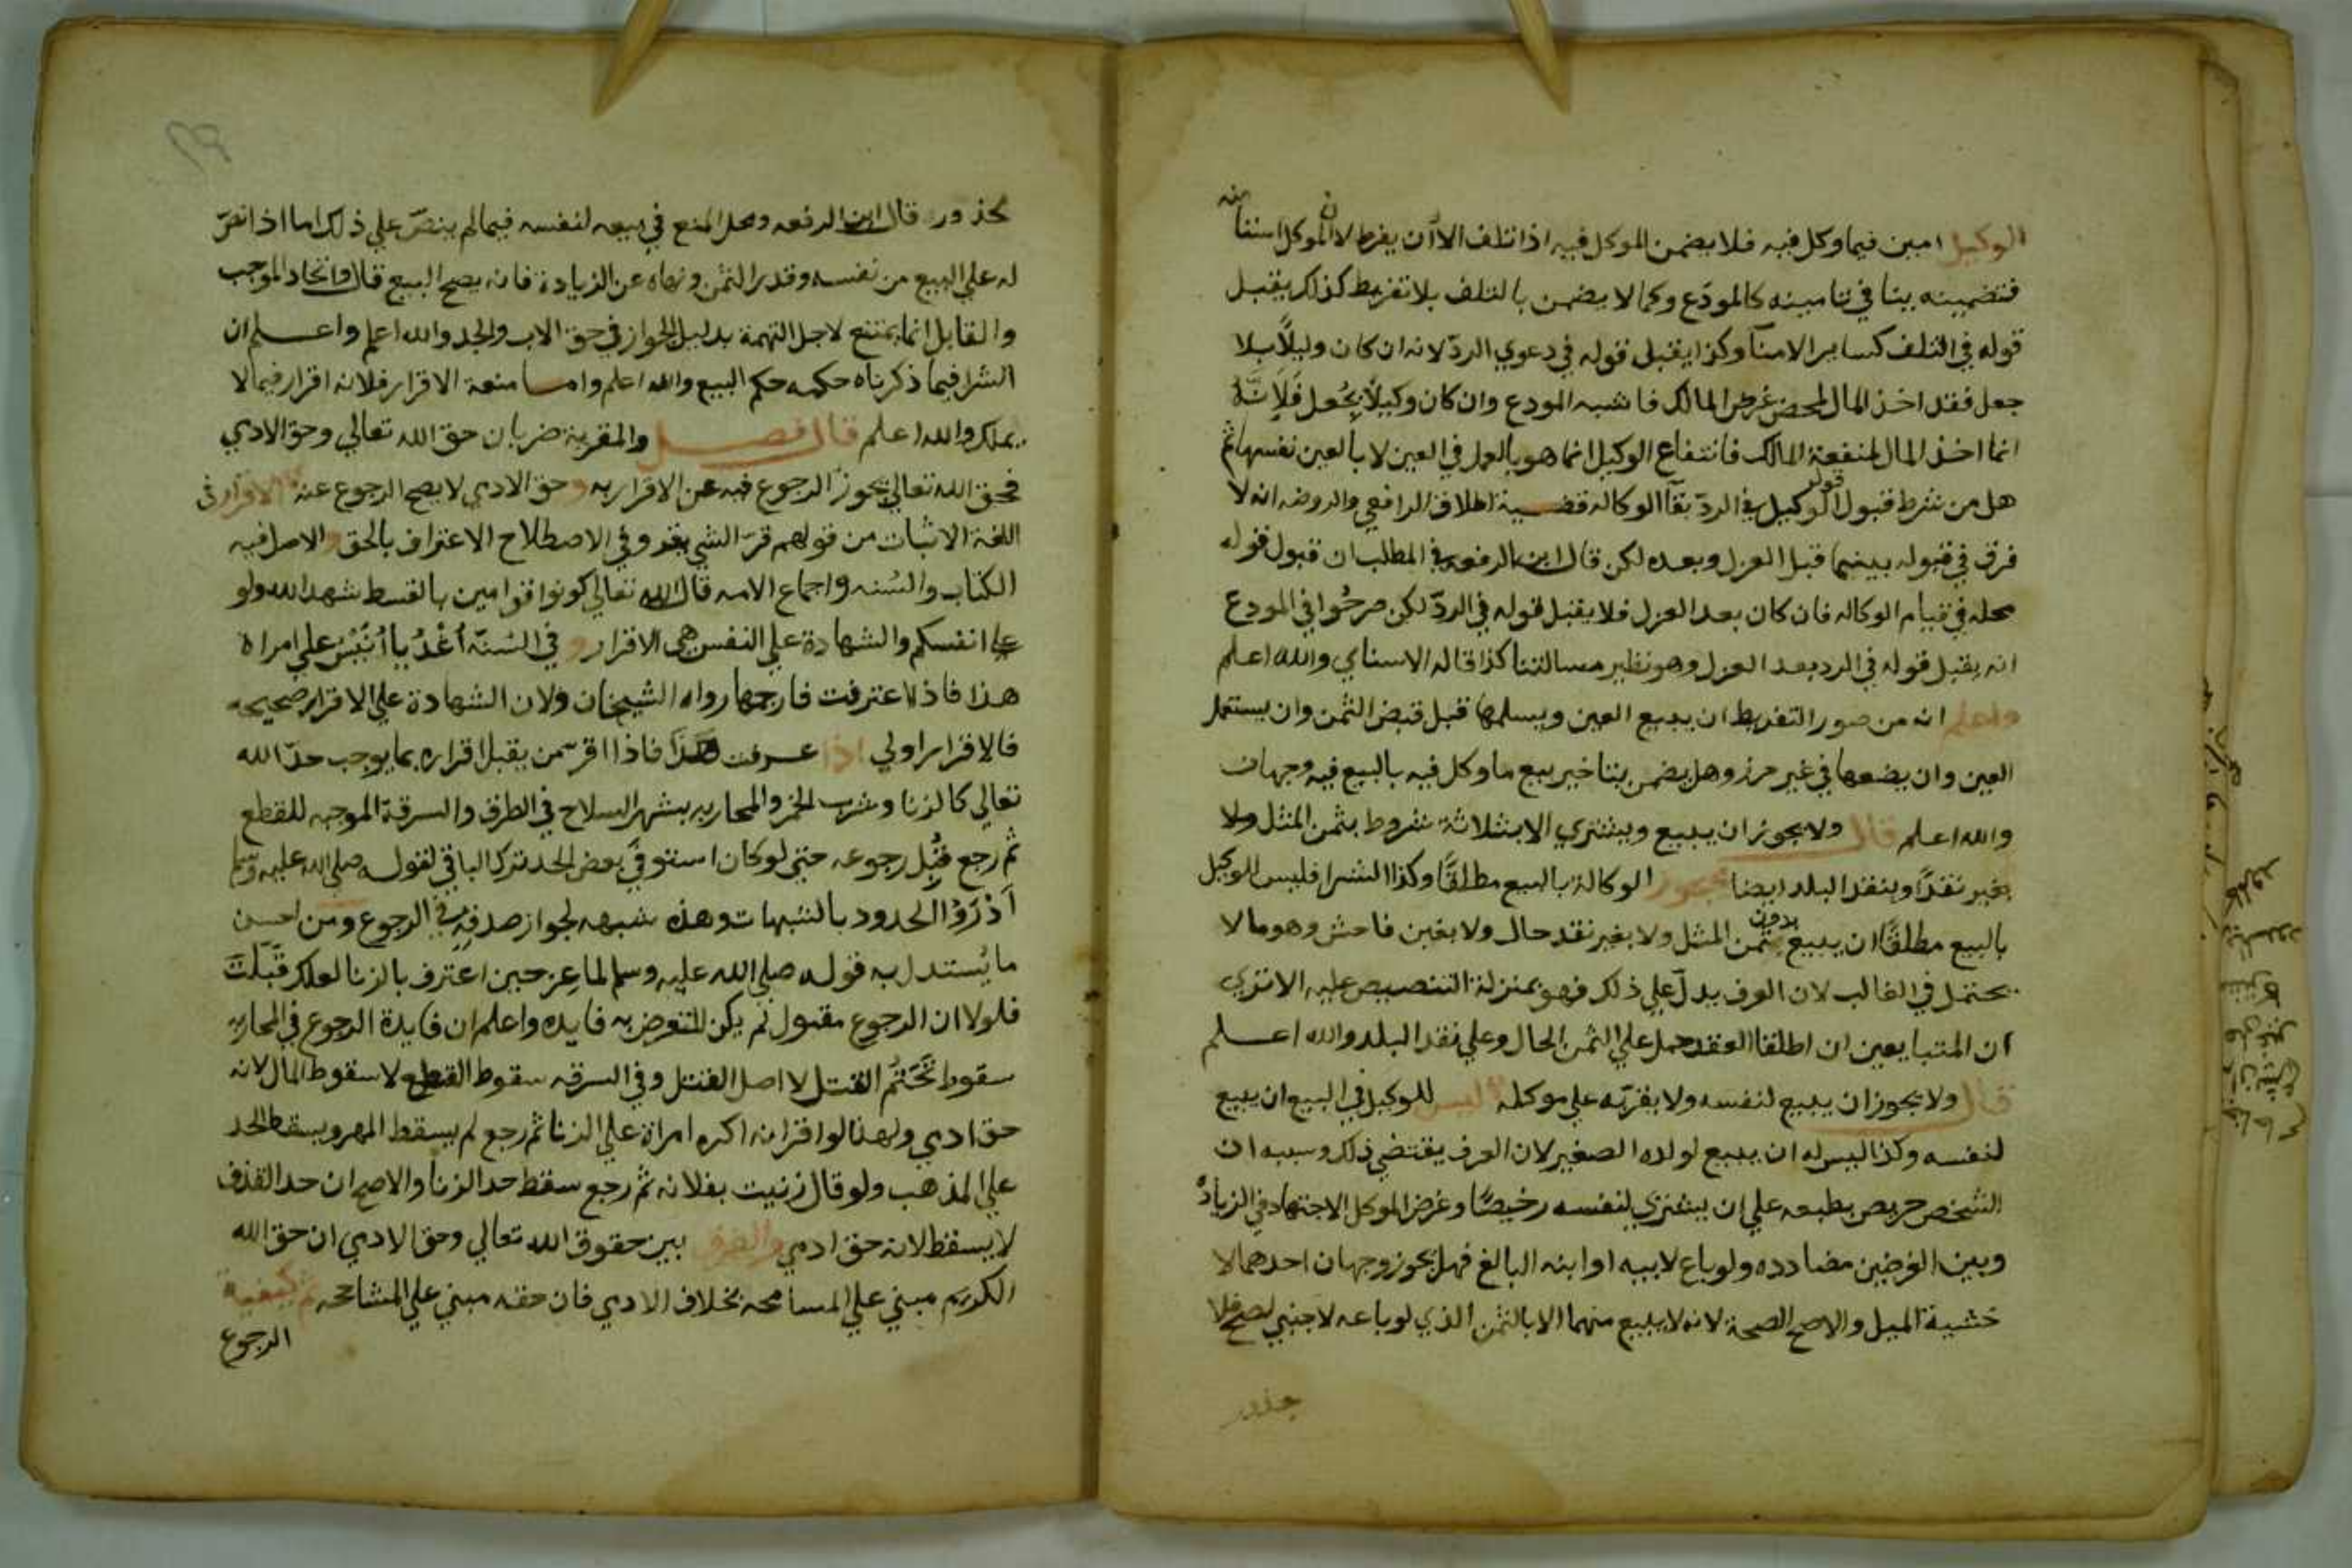 الوكيل امين فيما وكل فيه فلا يضمن الموكل فيه اذا تلف الا ان يفرط لان الموكل استنا منه
فتضمينه ينافي تامينه كالمودع وكما لا يضمن بالتلف بلا تفريط كذلك يقبل
قوله في التلف كساير الامنآ وكذا يقبل قوله في دعوي الردّ لانه ان كان وكيلاً بلا
جعل فقد اخذ المال لمحض غرض المالك فاشبه المودع وان كان وكيلاً بجُعل فَلِاَنَّهُ
انما اخذ المال لمنفعة المالك فانتفاع الوكيل انما هو بالعمل في العين لا بالعين نفسها ثم
هل من شرط قبول قول الوكيل في الردّ بقآ الوكالة قضية اطلاق الرافعي والروضه انه لا
فرق في قبوله بينهما قبل العزل وبعده لكن قال ابن الرفعه في المطلب ان قبول قوله
محله في قيام الوكاله فان كان بعد العزل فلا يقبل قوله في الردّ لكن صرحُوا في المودع
انه يقبل قوله في الرد بعد العزل وهو نظير مسالتنا كذا قاله الاسناي والله اعلم
واعلم انه من صور التفريط ان يبيع العين ويسلمها قبل قبض الثمن وان يستعمل
العين وان يضعها في غير حرز وهل يضمن بتاخير بيع ما وكل فيه بالبيع فيه وجهان
والله اعلم قال ولا يجوز ان يبيع ويشتري الا بثلاثة شروط بثمن المثل ولا
بغير نقدًا وبنقد البلد ايضا تجوز الوكالة بالبيع مطلقًا وكذا الشرا فليس للوكيل
بالبيع مطلقًا ان يبيع بدون ثمن المثل ولا بغير نقد حال ولا بغبن فاحش وهو ما لا
يحتمل في الغالب لان العرف يدلّ علي ذلك فهو بمنزلة التنصيص عليه الا تري
ان المتبايعين ان اطلقا العقد حمل علي الثمن الحال وعلي نقد البلد والله اعلم
قال ولا يجوز ان يبيع لنفسه ولا يقرّ به علي موكله ليس للوكيل في البيع ان يبيع
لنفسه وكذا ليس له ان يبيع لولده الصغير لان العرف يقتضي ذلك وسببه ان
الشخص حريص بطبعه علي ان يشتري لنفسه رخيصًا وغرض الموكل الاجتهاد في الزيادة
وبين الغرضين مضادده ولو باع لابيه او ابنه البالغ فهل يجوز وجهان احدهما لا
خشية الميل والاصح الصحة لانه لا يبيع منهما الا بالثمن الذي لو باعه لاجنبي لصح فلا
محذور قال ابن الرفعه ومحل المنع في بيعه لنفسه فيما لم ينصّ علي ذلك اما اذا نصّ
له علي البيع من نفسه وقدر الثمن ونهاه عن الزيادة فانه يصح البيع قال واتحاد الموجب
والقابل انما يمتنع لاجل التهمة بدليل الجواز في حق الاب والجد والله اعلم واعلم ان
الشرا فيما ذكرناه حكمه حكم البيع والله اعلم واما منعة الاقرار فلانه اقرار فيما لا
يملك والله اعلم قال فصل والمقر به ضربان حق الله تعالي وحق الادمي
فحق الله تعالي يجوز الرجوع فيه عن الاقرار به وحق الادمي لا يصح الرجوع عنه الاقرار في
اللغة الاثبات من قولهم قرّ الشي يقر وفي الاصطلاح الاعتراف بالحق والاصل فيه
الكتاب والسُنه واجماع الامه قال الله تعالي كونوا قوامين بالقسط شهدا لله ولو
علي انفسكم والشهادة علي النفس هي الاقرار وفي السُنّة اُغْدُ يا اُنَيْسُ علي امراة
هذا فاذا اعترفت فارجمها رواه الشيخان ولان الشهادة علي الاقرار صحيحه
فالاقرار اولي اذا عرفت هذا فاذا اقر من يقبل اقراره بما يوجب حدّ الله
تعالي كالزنا وشرب الخمر والمحاربه بشهر السلاح في الطرق والسرقة الموجبه للقطع
ثم رجع قُبِل رجوعه حتي لو كان استوفي بعض الحد ترك الباقي لقوله صلي الله عليه وسلم
اَدْرَؤُا الحدود بالشبهات وهذه شبهه لجواز صدقه في الرجوع ومن احسن
ما يُستدل به قوله صلي الله عليه وسلم لماعز حين اعترف بالزنا لعلك قَبَّلتَ
فلولا ان الرجوع مقبول لم يكن للتعرض به فايده واعلم ان فايدة الرجوع في المحاربه
سقوط تَحَتُّم القتل لا اصل القتل وفي السرقه سقوط القطع لا سقوط المال لانه
حق ادمي ولهذا لو اقر انه اكره امراة علي الزنا ثم رجع لم يسقط المهر ويسقط الحد
علي المذهب ولو قال زنيت بفلانه ثم رجع سقط حد الزنا والاصح ان حد القذف
لا يسقط لانه حق ادمي والفرق بين حقوق الله تعالي وحق الادمي ان حق الله
الكريم مبني علي المسامحه بخلاف الادمي فان حقه مبني علي المشاححه ثم كيفية
الرجوع